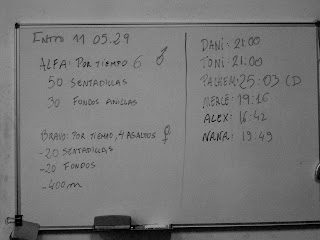 ENTTO 11 05.29
ALFA: POR TIEMPO 6 ♂
50 SENTADILLAS
30 FONDOS ANILLAS
BRAVO: POR TIEMPO, 4 ASALTOS ♀
-20 SENTADILLAS
-20 FONDOS
-400m
DANI: 21:00
TONI: 21:00
PACHEM: 25:03 CD
MERCÈ: 19:16
ALEX: 16:42
NANA: 19:49